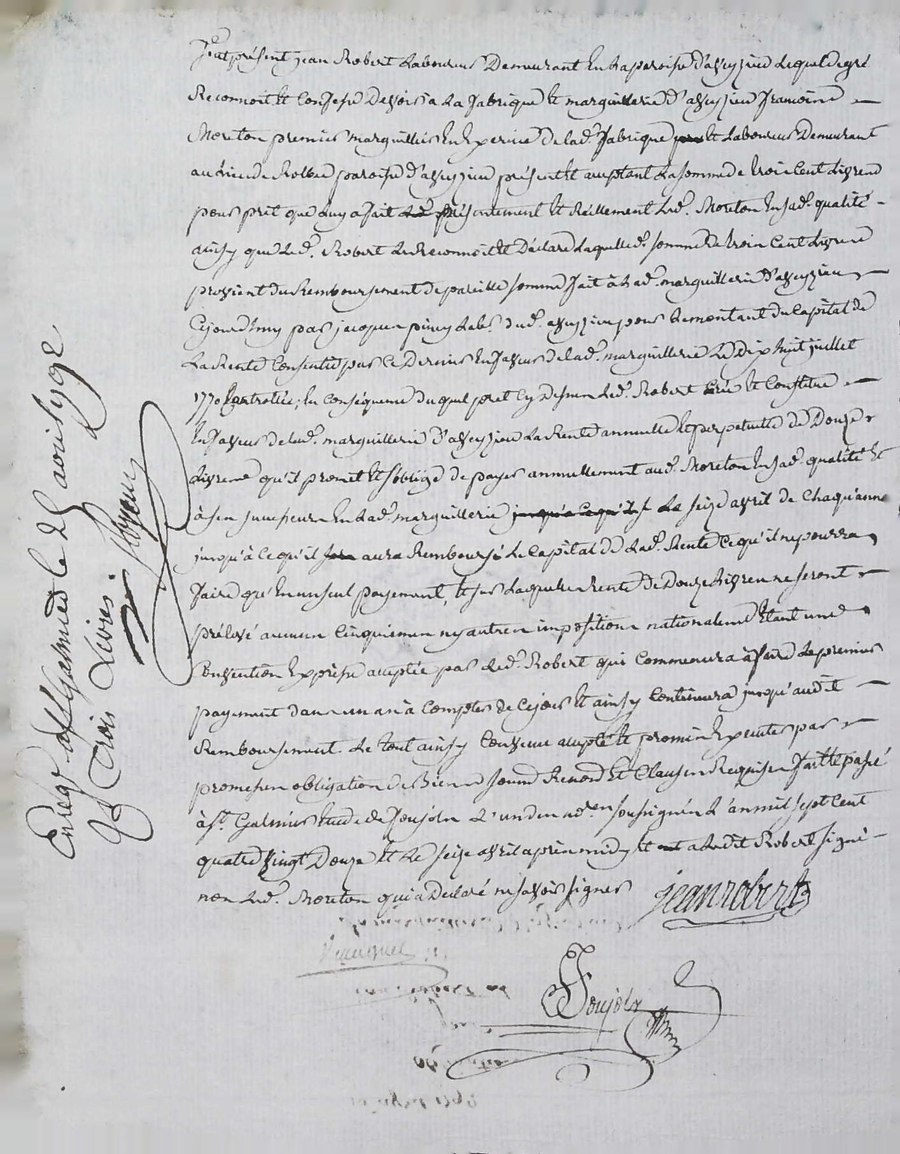 fut présent jean Robert Laboureur Demeurant En la paroisse d'aveyzieu Lequel de gré
Reconnoit et Confesse Devoir a La fabrique et marguillerie d'aveyzieu françoise
Moreton premier marguillier En Exercice de lad. fabrique et Laboureur Demeurant
au lieu de paroisse d'aveyzieu présent et acceptant La somme de trois Cent Livres
pour prêt que Luy a fait présentement et Reellement Led. Moreton En sad. qualité
ainsy que Led. Robert Le Reconnoit et Déclare Laquelle d. somme de trois Cent Livres
provient du Remboursement de pareille somme fait à Lad. marguillerie d'aveyzieu
Cejourd'huy par jacques Lab. dud. aveyzieu pour Le montant du Capital de
La Rente Consentie par Ce Dernier En faveur de lad. marguillerie Le dix huit juillet
1770 Controllée; En Consequence duquel prêt Cy dessus Led. Robert Crée et Constitue
En faveur de lad. marguillerie d'aveyzieu La Rente annuelle et perpetuelle de Douze
Livres qu'il promet et s'oblige de payer annuellement aud. Moreton En sad. qualité et
à ses successeurs En Lad. marguillerie jusqu'a Ce qu'il Le seize avril de Chaqu'anne
jusqu'à Ce qu'il aura Remboursé Le Capital de Lad. Rente Ce qu'il ne pourra
faire qu'En un seul payement, et sur Laquelle Rente de Douze Livres ne seront
prélevé aucuns Cinquiemes ny autres impositions nationales Etant une
Convention Expresse acceptée par Led. Robert qui Commencera à faire Le premier
payement dans un an à Compter de Ce jour et ainsy Continuera jusqu'audit
Remboursement. Le tout ainsy Convenu accepté et promis Executer par
promesses obligation de Biens soumis Renond et Clauses Requises fait et passé
à St. Galmier Etude de Soujols L'un des nd.es soussignés L'an mil sept Cent
quatre vingt Douze et Le seize avril après midy et a Ledit Robert signé
non Led. Moreton qui a Déclaré ne savoir signer
jean robert
Soujols
Enreg. a St Galmier le 25 avril 1792
Trois Livres.